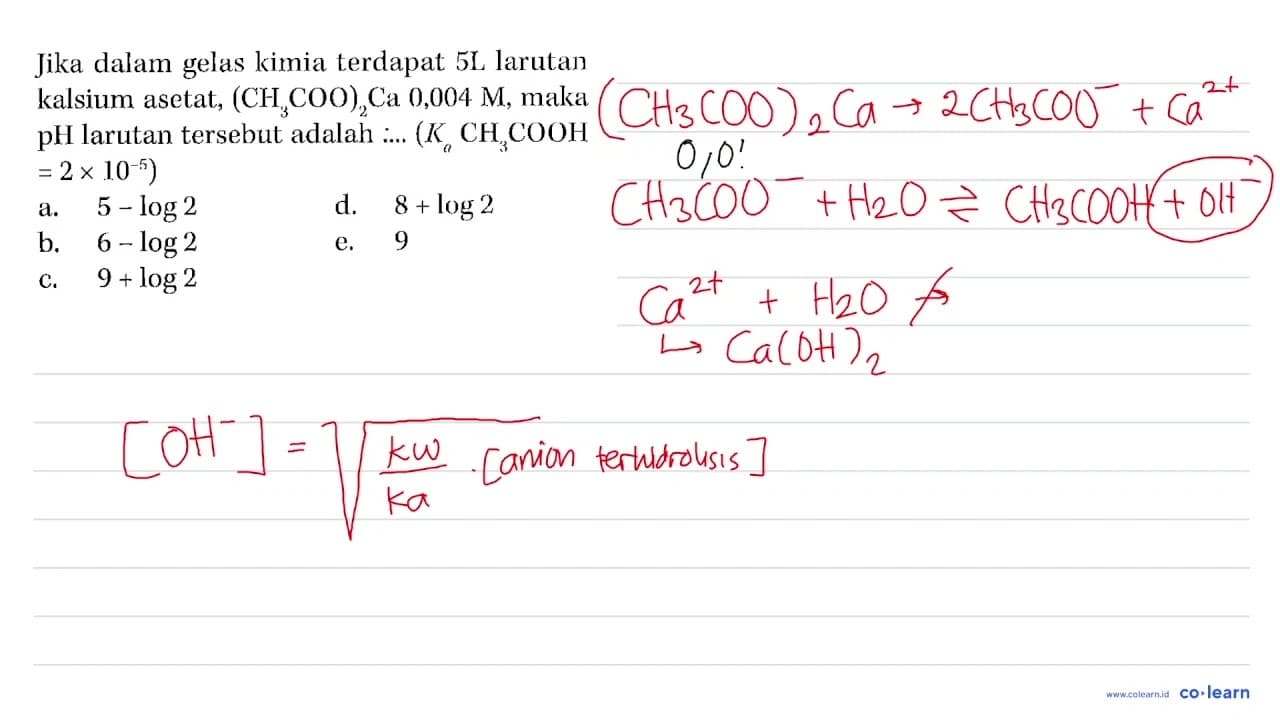 Jika dalam gelas kimia terdapat 5L larutan
kalsium asetat, (CH₃COO)₂Ca 0,004 M, maka
pH larutan tersebut adalah :... (Kₐ CH₃COOH
= 2 × 10⁻⁵)
a. 5 – log 2
b. 6 – log 2
c. 9 + log 2
d. 8 + log 2
e. 9
(CH3COO)₂Ca → 2CH3COO⁻ + Ca²⁺
0,0!
CH3COO⁻ + H2O ⇌ CH3COOH + OH⁻
Ca²⁺ + H2O ↛
↳ Ca(OH)₂
[OH⁻] = √ kw/ka . [anion terhidrolisis]
www.colearn.id co·learn